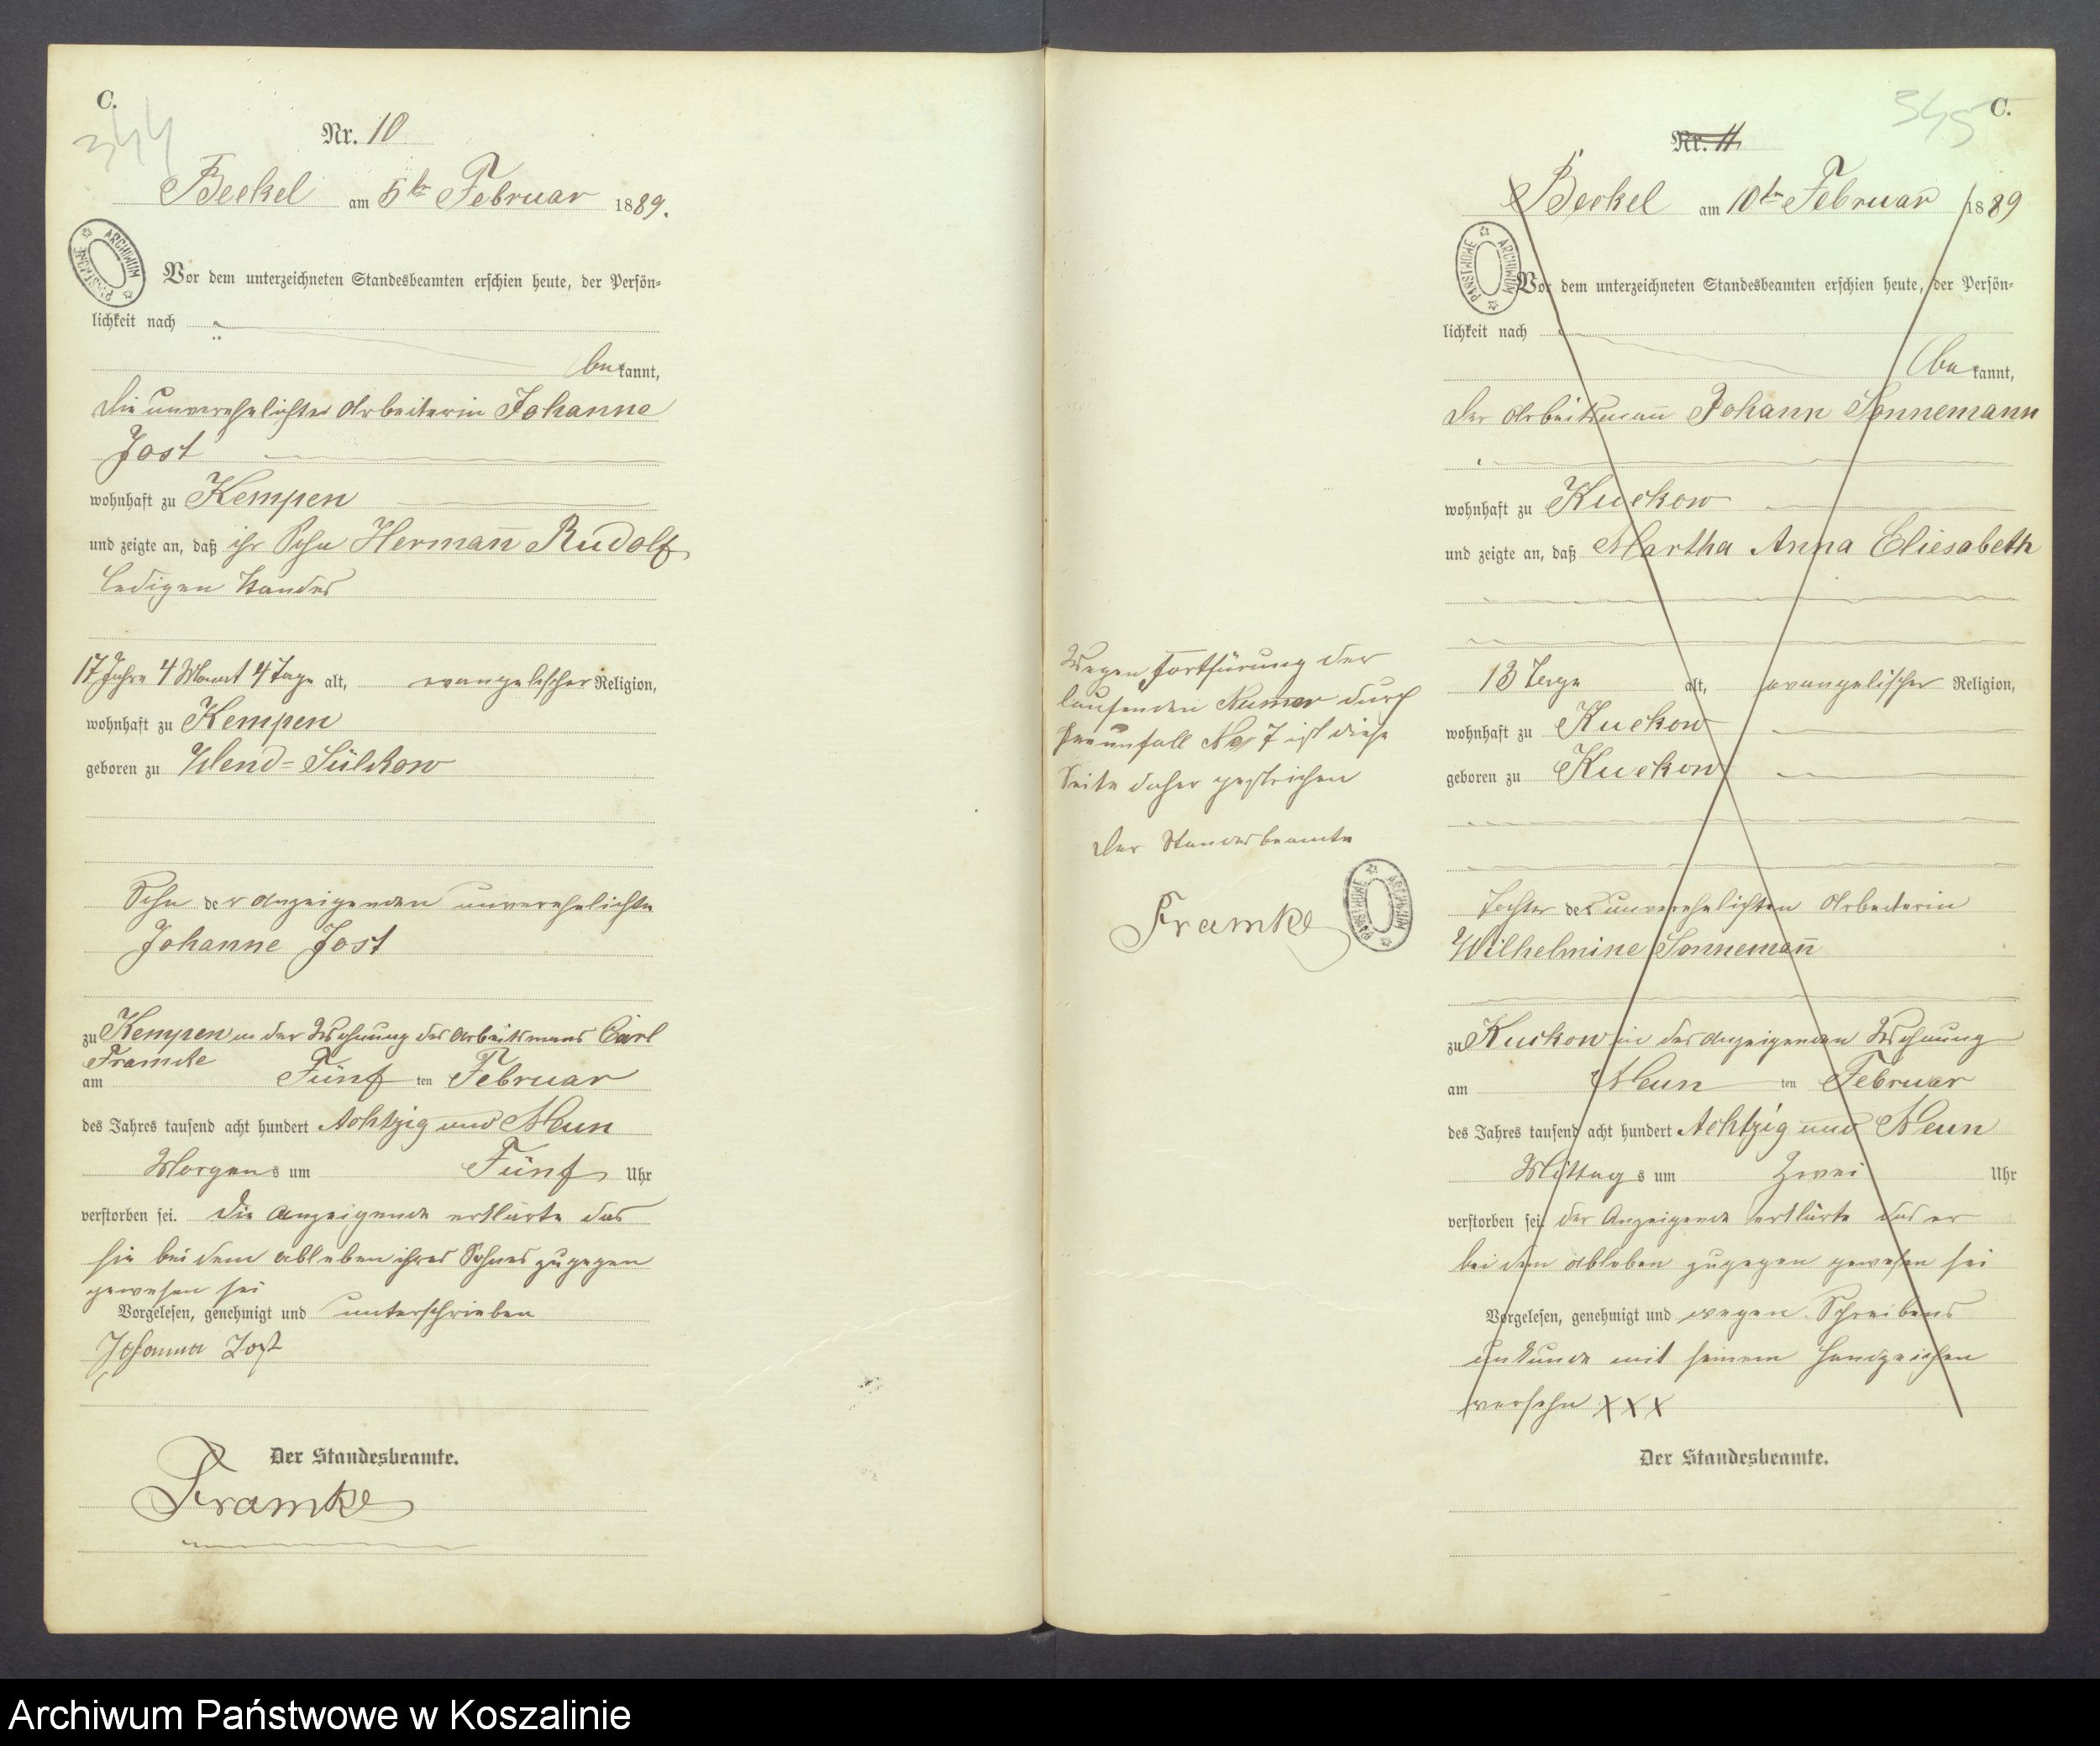 C.
344
Nr. 10
Beckel am 5ten Februar 1889.
ARCHIWUM PAŃSTWOWE
Vor dem unterzeichneten Standesbeamten erschien heute, der Persön-
lichkeit nach
bekannt,
die unverehelichte Arbeiterin Johanne
Jost
wohnhaft zu Kempen
und zeigte an, daß ihr Sohn Hermañ Rudolf
ledigen Standes
17 Jahre 4 Monat 4 Tage alt, evangelischer Religion,
wohnhaft zu Kempen
geboren zu Wend=Silkow
Sohn der Anzeigenden unverehelichte
Johanne Jost
zu Kempen in der Wohnung des Arbeitsmanns Carl
Framcke
am Fünf ten Februar
des Jahres tausend acht hundert Achtzig und Neun
Morgens um Fünf Uhr
verstorben sei. Die Anzeigende erklärte das
sie bei dem ableben ihres Sohnes zugegen
gewesen sei
Vorgelesen, genehmigt und unterschrieben
Johanna Jost
Der Standesbeamte.
Framke
345
C.
Nr. 11
Beckel am 10ten Februar 1889
ARCHIWUM PAŃSTWOWE
Vor dem unterzeichneten Standesbeamten erschien heute, der Persön-
lichkeit nach
bekannt,
der Arbeitsmañ Johann Sonnemann
wohnhaft zu Kuckow
und zeigte an, daß Martha Anna Eliesabeth
13 Tage alt, evangelischer Religion,
wohnhaft zu Kuckow
geboren zu Kuckow
Tochter der unverehelichten Arbeiterin
Wilhelmine Sonnemañ
zu Kuckow in des Anzeigenden Wohnung
am Neun ten Februar
des Jahres tausend acht hundert Achtzig und Neun
Mittags um Zwei Uhr
verstorben sei. der Anzeigende erklärte das er
bei dem ableben zugegen gewesen sei
Vorgelesen, genehmigt und wegen Schreibens
unkunde mit seinem Handzeichen
versehn XXX
Der Standesbeamte.
Wegen Fortfürung der
laufenden Numer durch
No 7 ist diese
Seite daher gestrichen
Der Standesbeamte
Framke
ARCHIWUM PAŃSTWOWE
Archiwum Państwowe w Koszalinie